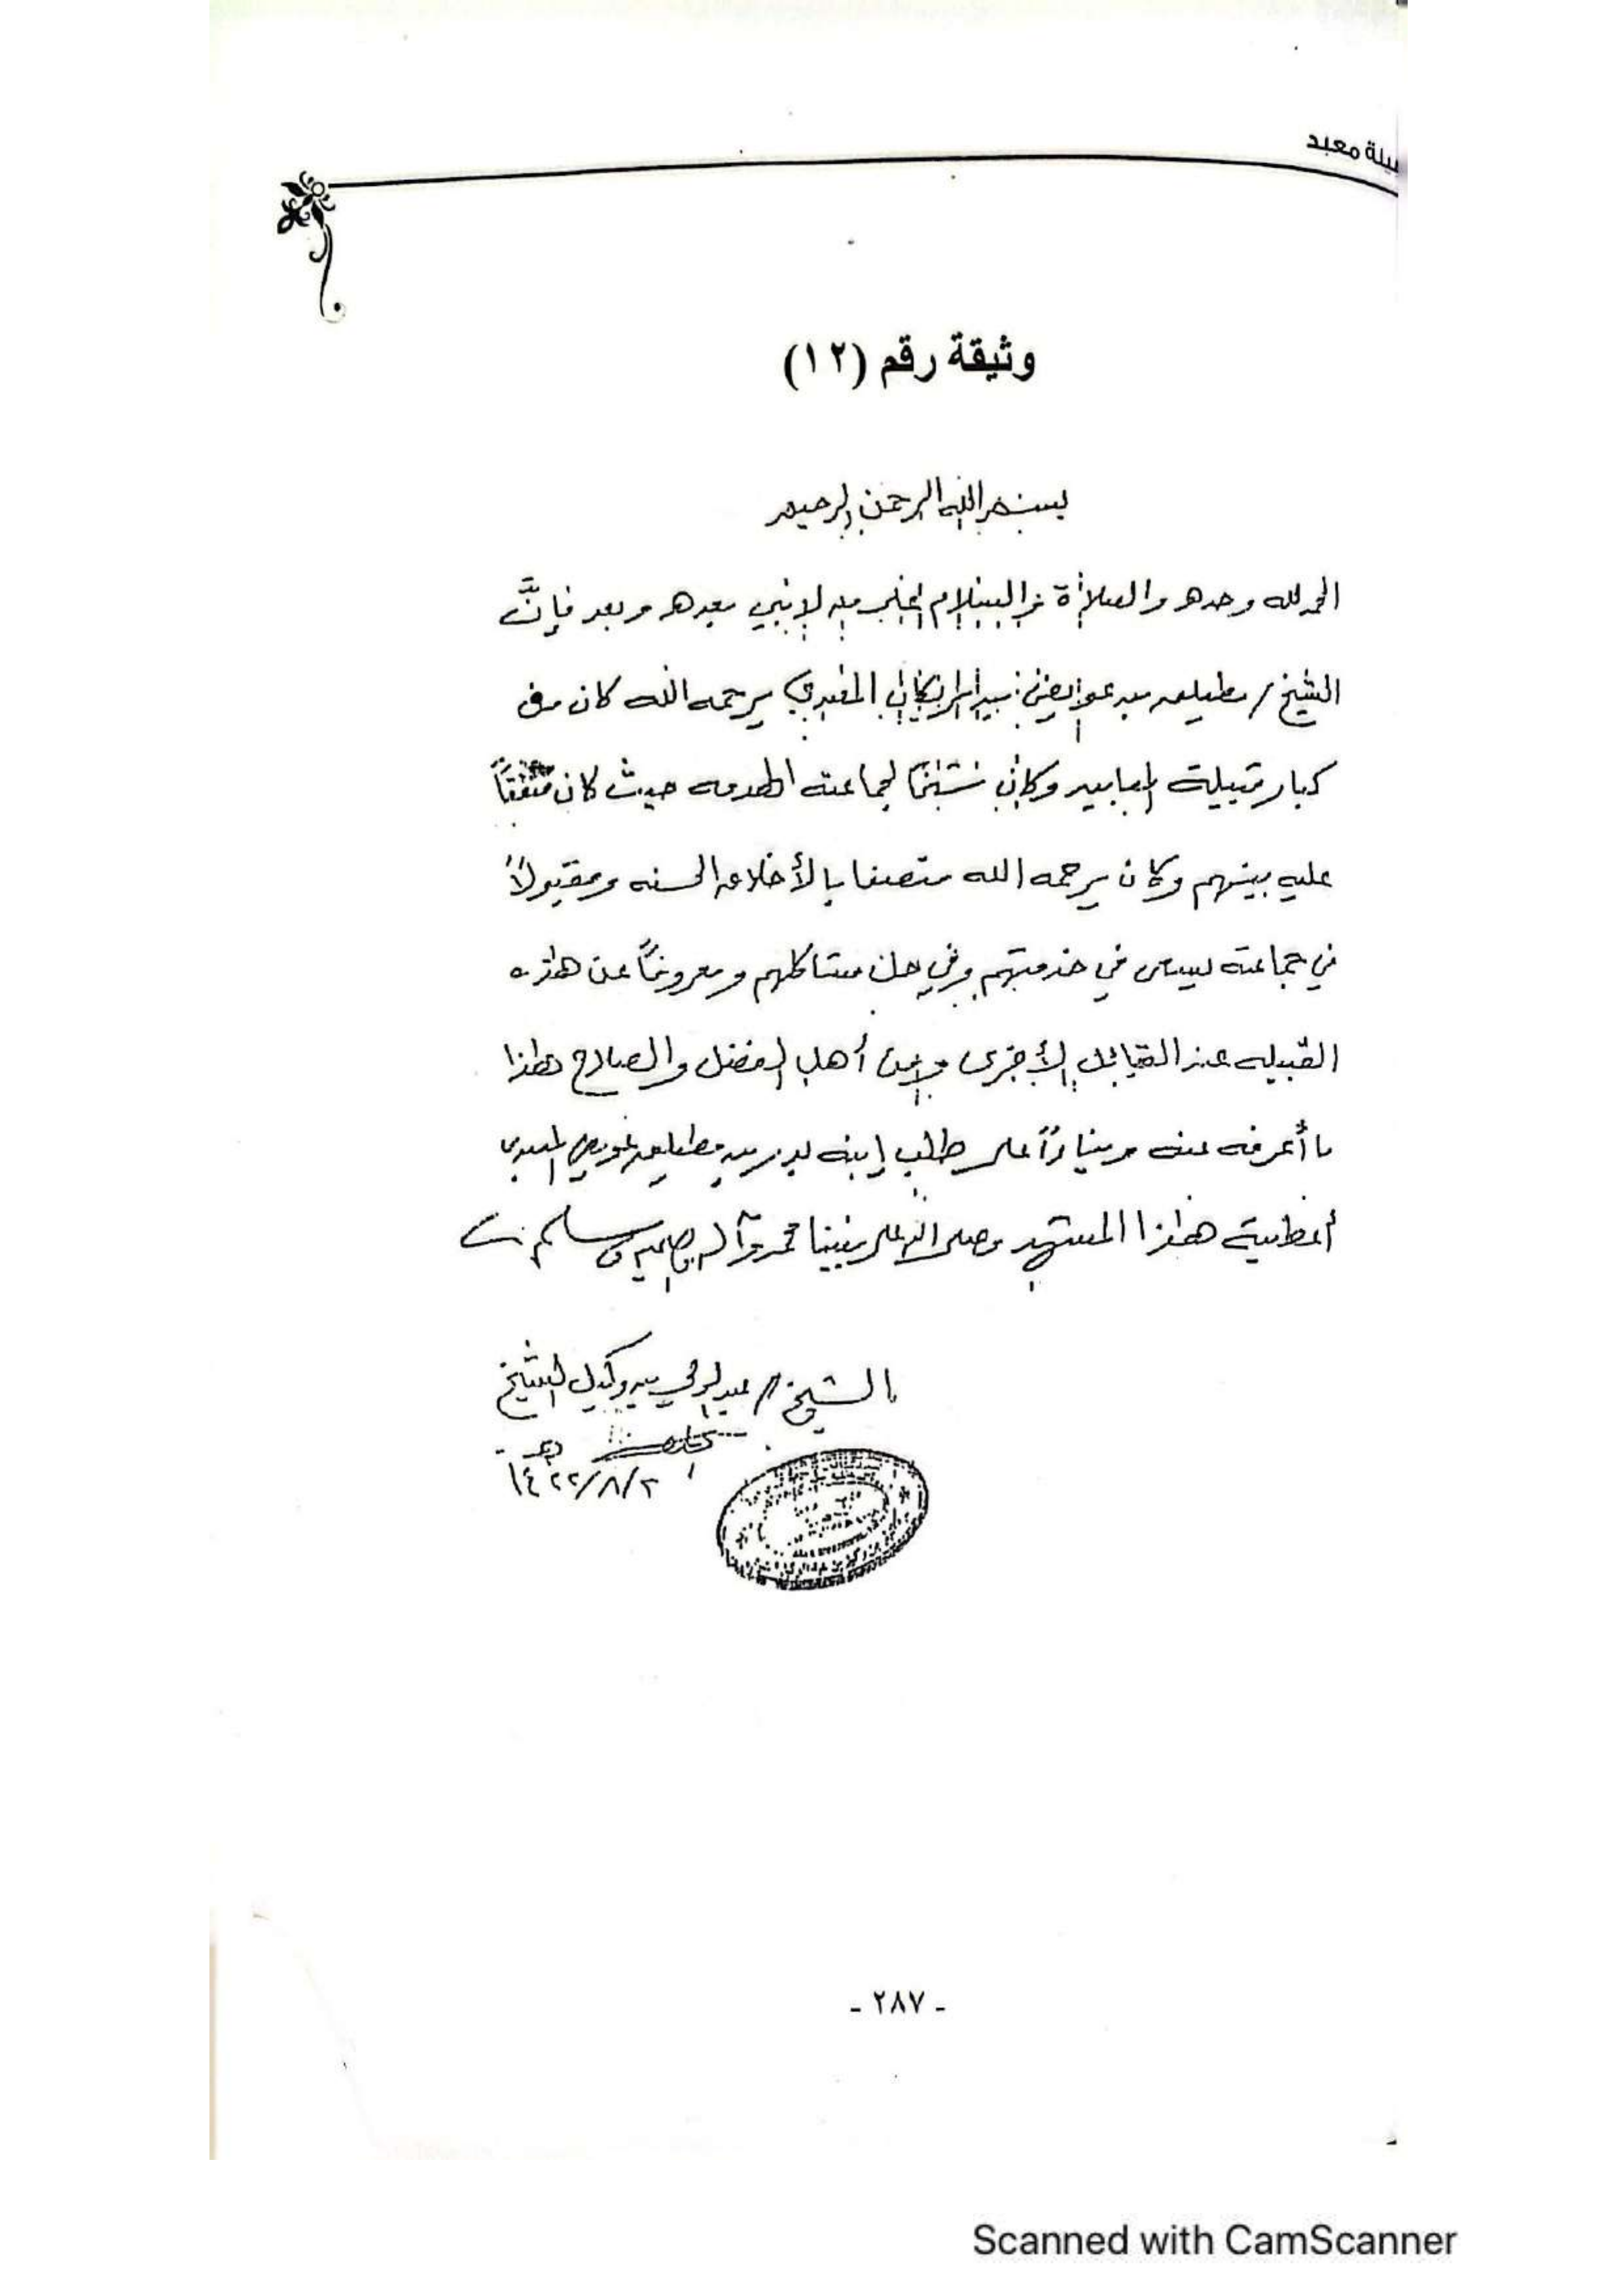 بيلة معبد
وثيقة رقم (١٢)
بسم الله الرحمن الرحيم
الحمد لله وحده والصلاة والسلام على من لا نبي بعده وبعد فإنَّ
الشيخ / مطيلق بن عويض المعبدي يرحمه الله كان من
كبار قبيلة وكان شيخاً لجماعته حيث كان متفقاً
عليه بينهم وكان يرحمه الله متصفا بالأخلاق الحسنه ومقبولاً
في جماعته يسعى في خدمتهم وفي حل مشاكلهم ومعروفاً عن هذه
القبيله عند القبائل الأخرى ومن أهل الفضل والصلاح هذا
ما أعرفه عنه وبناءً على طلب إبنه بن مطيلق عويض المعبدي
أعطيته هذا المشهد وصلى الله على نبينا محمد وآله وصحبه وسلم
الشيخ / بن الشيخ
١٤٢٢/٨/٢ هـ
- ٢٨٧ -
Scanned with CamScanner